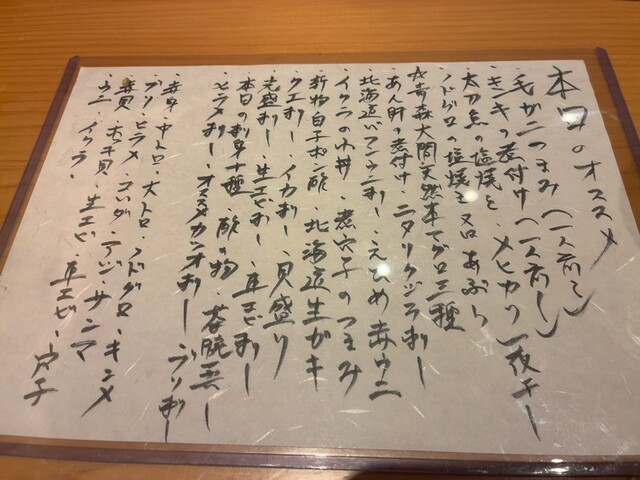 本日のオススメ
・毛がニつまみ(一人前〜)
・きんきの煮付け(一人前〜)・メヒカリ一夜干し
・太刀魚の塩焼き
・ノドグロの塩焼き又はあぶり
☆青森大間天然本マグロ三種
・あん肝の煮付け・ニタリクジラ刺し
・北海道バフンウニ刺し・えひめ赤ウニ
・イクラの小丼・煮穴子のつまみ
・新物白子ポン酢・北海道生ガキ
・クエ刺し・イカ刺し・貝盛り
・光盛り・生エビ刺し・車エビ刺し
・本日の刺身十種・酢の物・茶碗蒸し
・ヒラメ刺し・カツオ刺し・ブリ刺し
・赤身・中トロ・大トロ・ノドグロ・キンメ
・ブリ・ヒラメ・コハダ・アジ・サンマ
・赤貝・ホッキ貝・生エビ・車エビ・穴子
・ウニ・イクラ